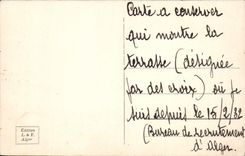 Carte a conserver
qui montre la
terrasse (désignée
par des croix) où je
suis depuis le 15/2/32
(Bureau de recrutement
d'Alger.
Edition
L. & Y.
Alger